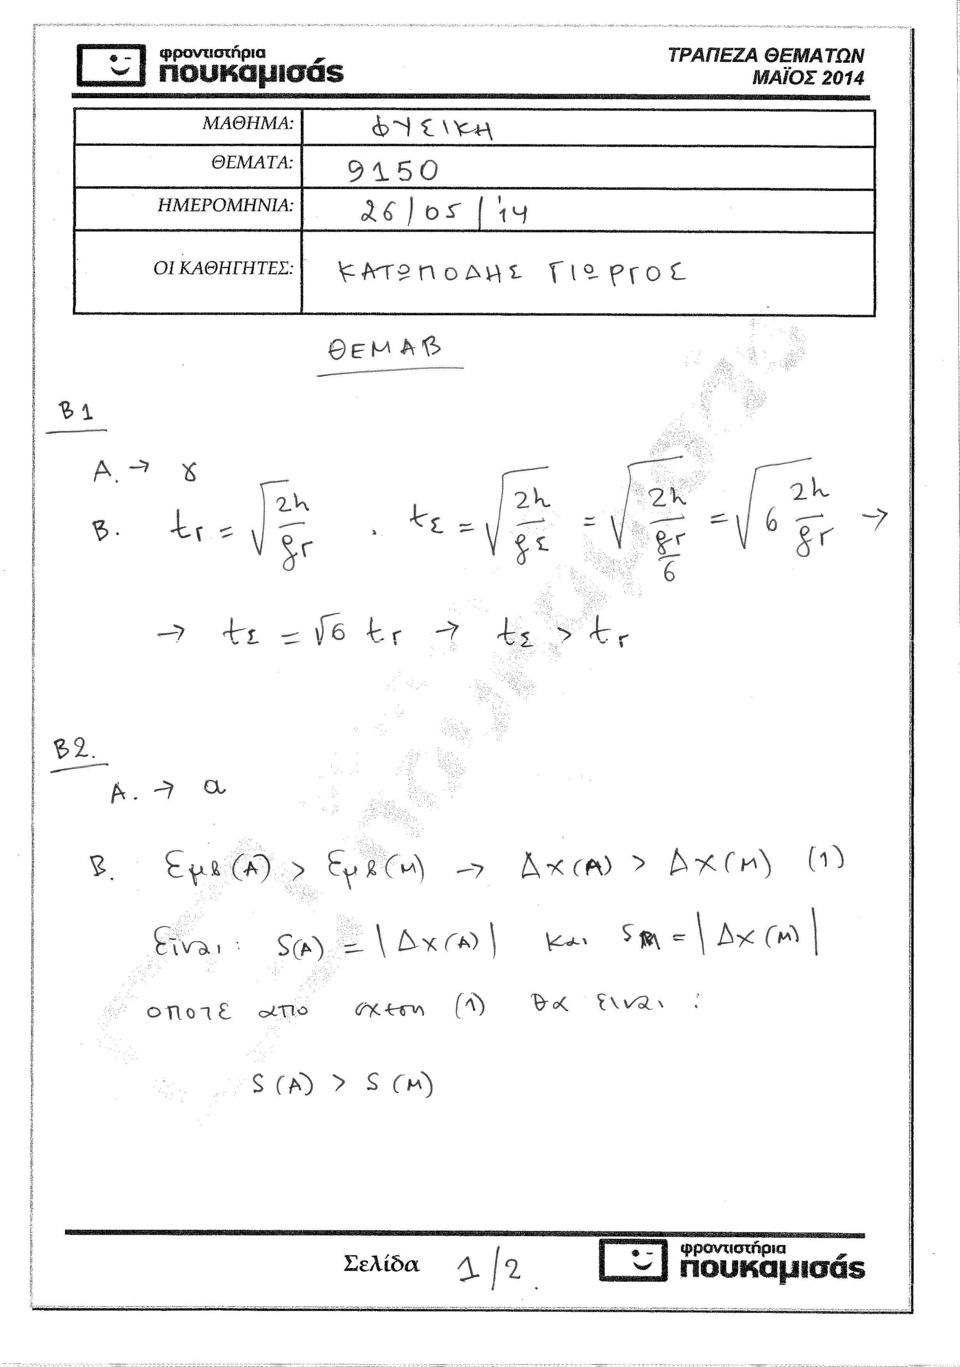 φροντιστήρια
πουκαμισάς
ΤΡΑΠΕΖΑ ΘΕΜΑΤΩΝ
ΜΑΪΟΣ 2014
ΜΑΘΗΜΑ: ΦΥΣΙΚΗ
ΘΕΜΑΤΑ: 9150
ΗΜΕΡΟΜΗΝΙΑ: 26/05/'14
ΟΙ ΚΑΘΗΓΗΤΕΣ: ΚΑΤΩΠΟΔΗΣ ΓΙΩΡΓΟΣ
ΘΕΜΑ Β
Β1
Α. → γ
Β. tΓ = √(2h/gΓ) . tΣ = √(2h/gΣ) = √(2h/(gΓ/6)) = √(6 2h/gΓ) →
→ tΣ = √6 tΓ → tΣ > tΓ
Β2.
Α. → α
Β. Εμβ(Α) > Εμβ(Μ) → Δx(Α) > Δx(Μ) (1)
Είναι: S(A) = |Δx(A)| και SΜ = |Δx(Μ)|
οποτε απο σχεση (1) θα ειναι :
S(A) > S(M)
Σελίδα 1/2.
φροντιστήρια
πουκαμισάς